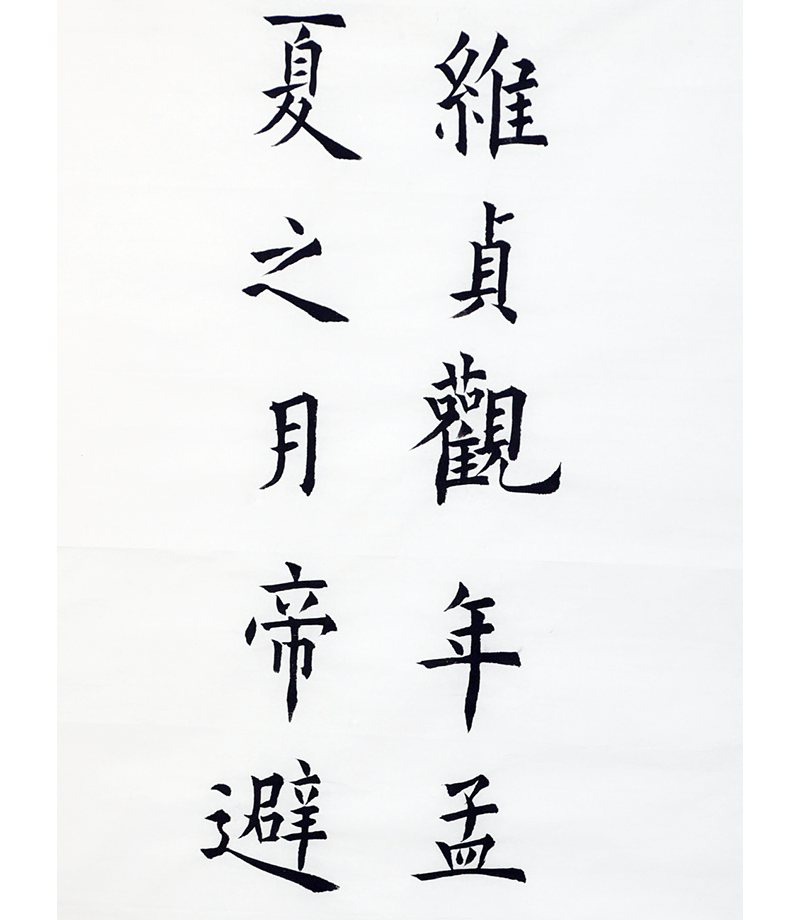 維貞觀年孟
夏之月帝避